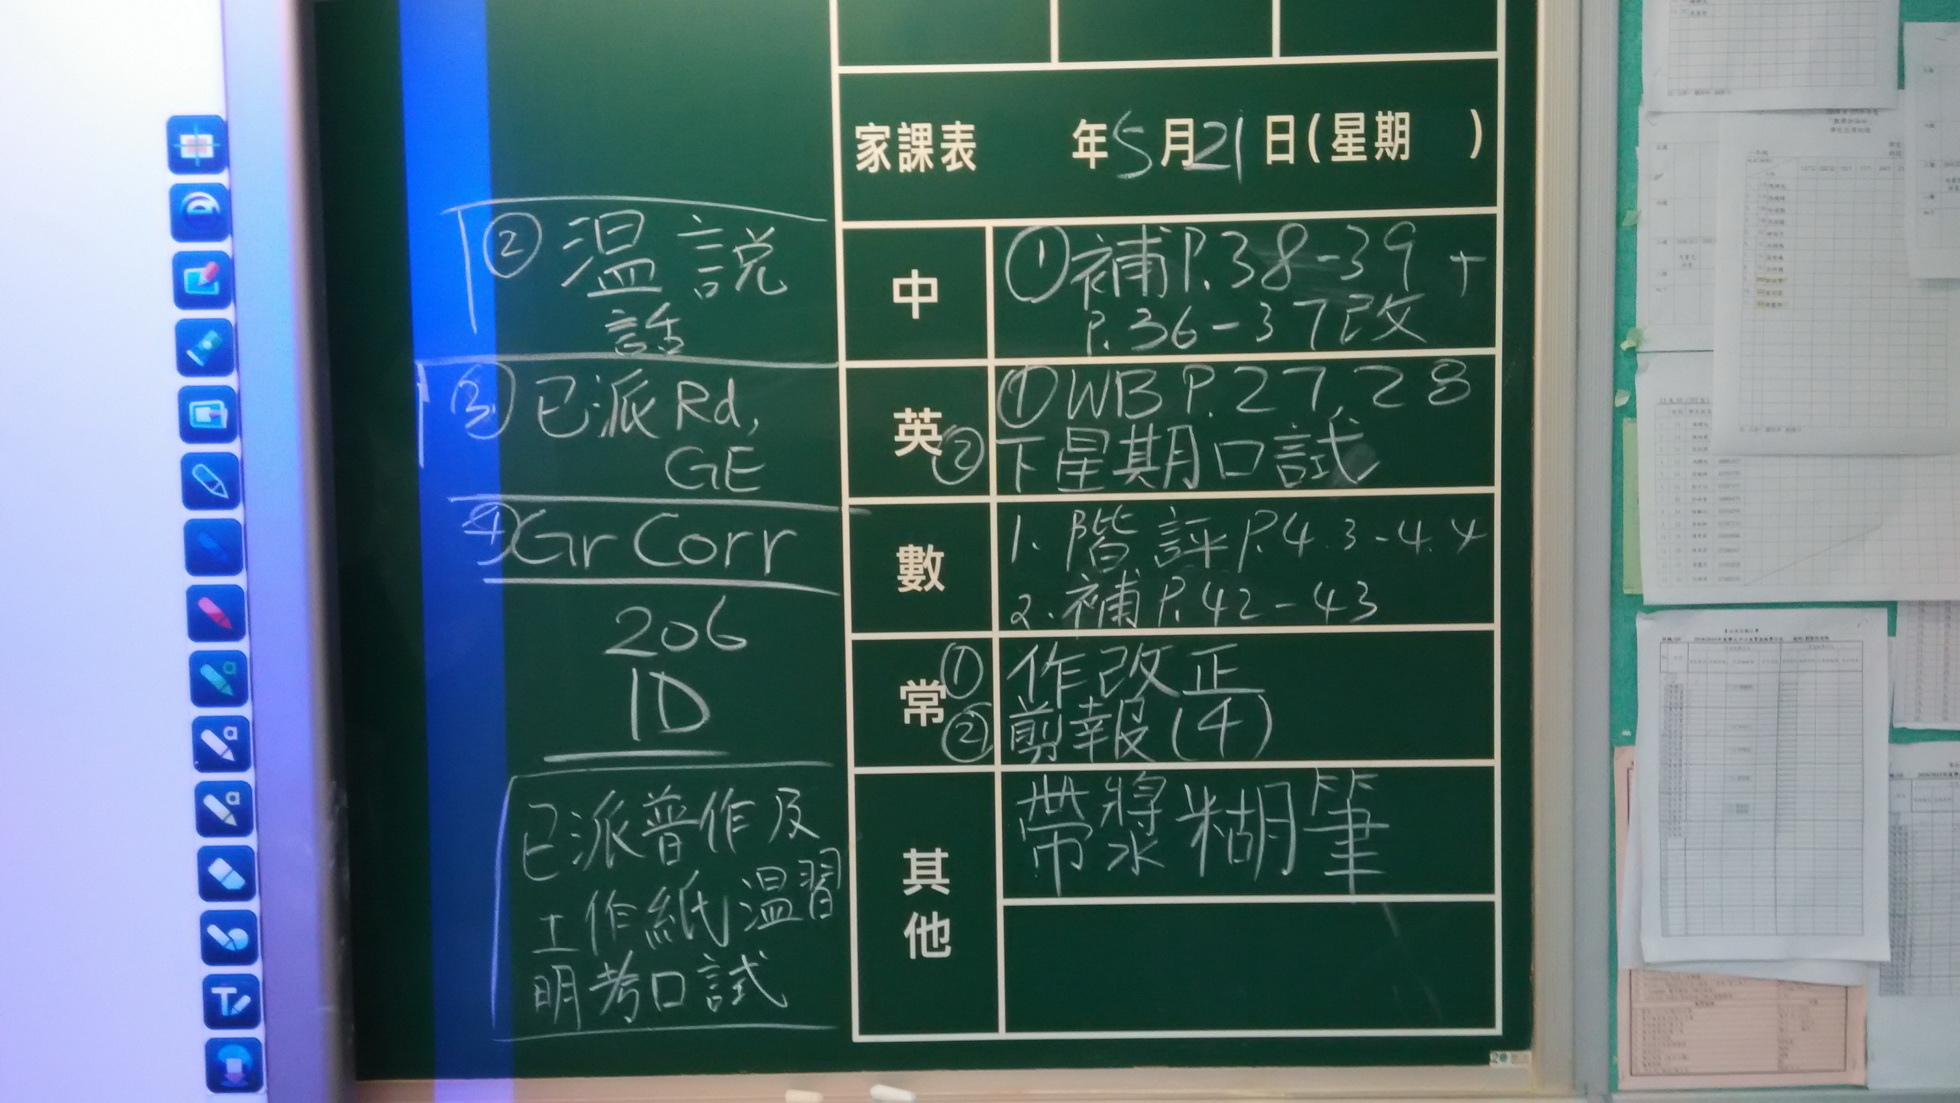 家課表 年5月21日(星期 )
② 温説
話
中
①補P.38-39 +
P.36-37改
③ 已派Rd,
GE
英
①WB P.27, 28
② 下星期口試
④Gr Corr
數
1. 階評P.4.3-4.4
2. 補P.42-43
206
1D
常
① 作改正
② 剪報(4)
已派普作及
工作紙温習
明考口試
其他
帶漿糊筆